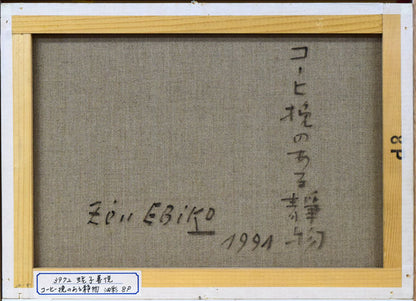 コーヒ挽のある静物
Zén EBiKO
1991
8P
蛯子善悦
コーヒー挽のある静物 油彩 8P